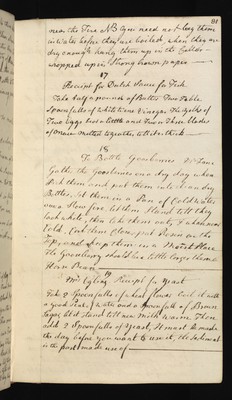 91
near the Fire NB you need not lay them
in water before they are boiled, when they are
dry enough hang them up in the Cellar
wrapped up in strong brown paper
17
Receipt for Dutch Sauce for Fish
Take half a pound of Butter Two Table
Spoonfulls of White Wine Vinegar The Yolks of
Two Eggs beat a little and Two or Three blades
of Mace melted together till it's thick
18
To Bottle Gooseberries
Gather the Gooseberries on a dry day when
pick them and put them into clean dry
Bottles, set them in a Pan of Cold Water
over a slow fire, let them stand till they
look white, then take them out &
Cold, Cork them close, put Rosin on the
Top and keep them in a Moist Place
The Gooseberry should be a little larger than a
Horn Bean
19
Mrs Receipt for Yeast
Take 2 Spoonfulls of wheat flower boil it with
a good Pint of Water and a Spoonfull of Brown
Sugar, let it stand till new Milk warm. Then
add 2 Spoonfulls of Yeast, It must be made
the day before you want to use it, the Sediment
is the part made use of